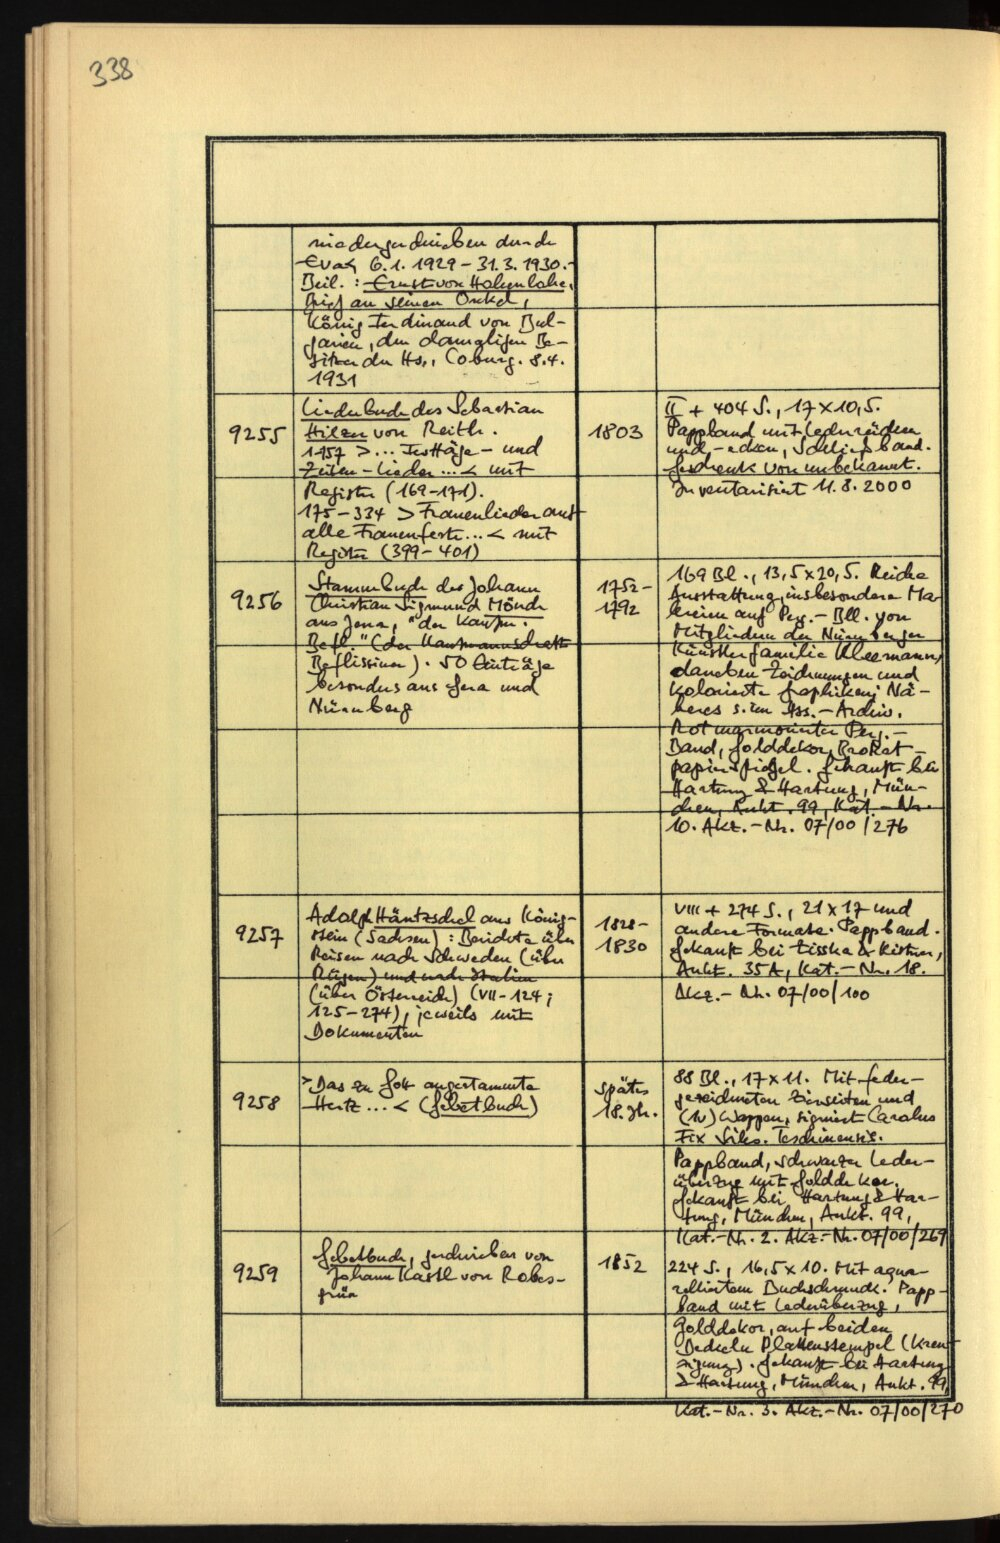 338
niedergeschrieben durch
Eva 6.1.1929 - 31.3.1930.-
Beil.: Ernst von Hohenlohe,
Brief an seinen Onkel,
König Ferdinand von Bul-
garien, den damaligen Be-
sitzer der Hs., Coburg. 8.4.
1931
9255
Liederbuch des Sebastian
Hilzer von Reith.
1-157 >... Festtäge- und
Zeiten-Lieder ...< mit
Register (169-171).
175-334 >Frauenlieder auf
alle Frauenfeste...< mit
Register (399-401)
1803
II + 404 S., 17 x 10,5.
Pappband mit Lederrücken
und -ecken, Schließband.
Geschenk von unbekannt.
Inventarisiert 11.8.2000
9256
Stammbuch des Johann
Christian Sigmund Mönch
aus Jena, "der Kaufm.
Befl." (der Kaufmannschaft
Beflissener). 50 Einträge
besonders aus Jena und
Nürnberg
1752-
1792
169 Bl., 13,5 x 20,5. Reiche
Ausstattung, insbesondere Ma-
lereien auf Perg.-Bll. von
Mitgliedern der Nürnberger
Künstlerfamilie Kleemann,
daneben Zeichnungen und
kolorierte Graphiken; Nä-
heres s. im Hss.-Archiv.
Rotmarmorierter Perg.-
Band, Golddekor, Brokat-
papierspiegel. Gekauft bei
Hartung & Hartung, Mün-
chen, Aukt. 99, Kat.-Nr.
10. Akz.-Nr. 07/00/276
9257
Adolph Häntzschel aus König-
stein (Sachsen): Berichte über
Reisen nach Schweden (über
Rügen) und nach Italien
(über Österreich) (VII-124;
125-274), jeweils mit
Dokumenten
1828-
1830
VIII + 274 S., 21 x 17 und
andere Formate. Pappband.
Gekauft bei Zisska & Kistner,
Aukt. 35A, Kat.-Nr. 18.
Akz.-Nr. 07/00/100
9258
>Das zu Gott angestammte
Hertz...< (Gebetbuch)
spätes
18. Jh.
88 Bl., 17 x 11. Mit feder-
gezeichneten Zierseiten und
(1v) Wappen, signiert Carolus
Fix Siles. Teschinensis.
Pappband, schwarzer Leder-
überzug mit Golddekor.
Gekauft bei Hartung & Har-
tung, München, Aukt. 99,
Kat.-Nr. 2. Akz.-Nr. 07/00/269
9259
Gebetbuch, geschrieben von
Johann Kastl von Robes-
grün
1852
224 S., 16,5 x 10. Mit aqua-
relliertem Buchschmuck. Papp-
band mit Lederüberzug,
Golddekor, auf beiden
Deckeln Plattenstempel (Kreu-
zigung). Gekauft bei Hartung
& Hartung, München, Aukt. 99,
Kat.-Nr. 3. Akz.-Nr. 07/00/270